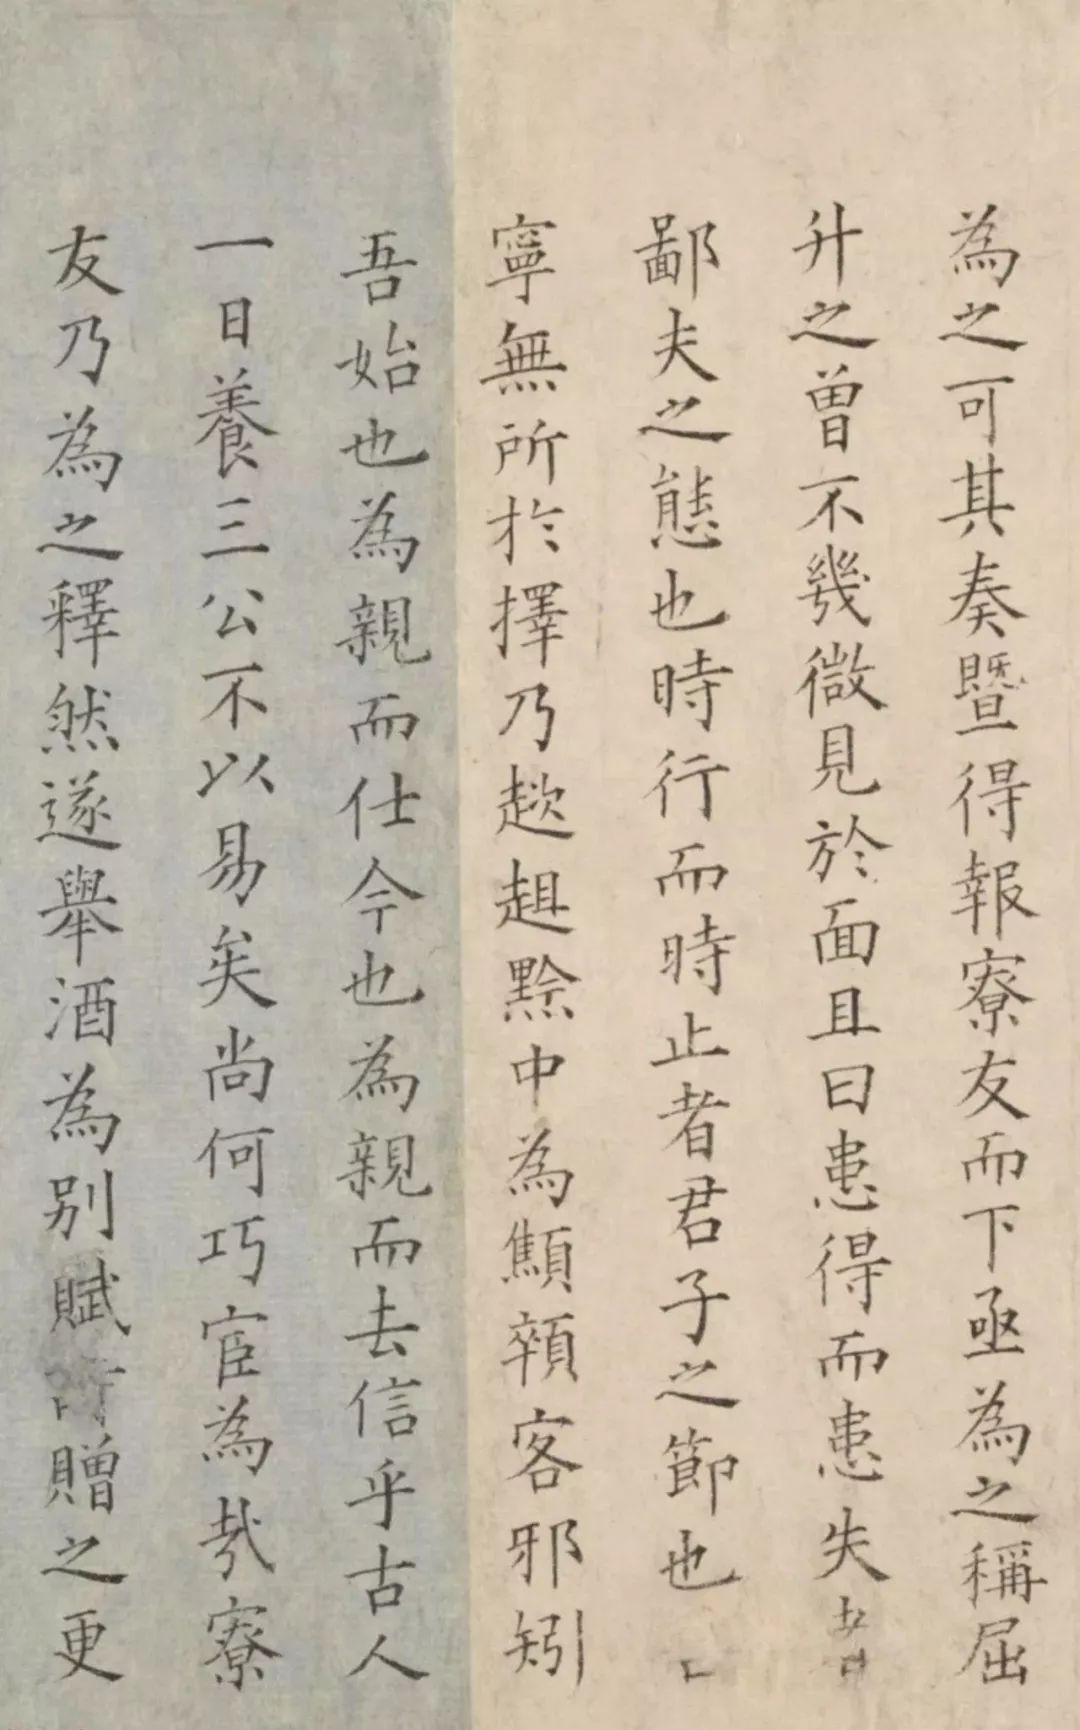 為之可其奏暨得報寮友而下亟為之稱屈
升之曾不幾微見於面且曰患得而患失者
鄙夫之態也時行而時止者君子之節也
寧無所於擇乃趑趄黥中為顦顇客邪矧
吾始也為親而仕今也為親而去信乎古人
一日養三公不以易矣尚何巧宦為哉寮
友乃為之釋然遂舉酒為別賦詩贈之更